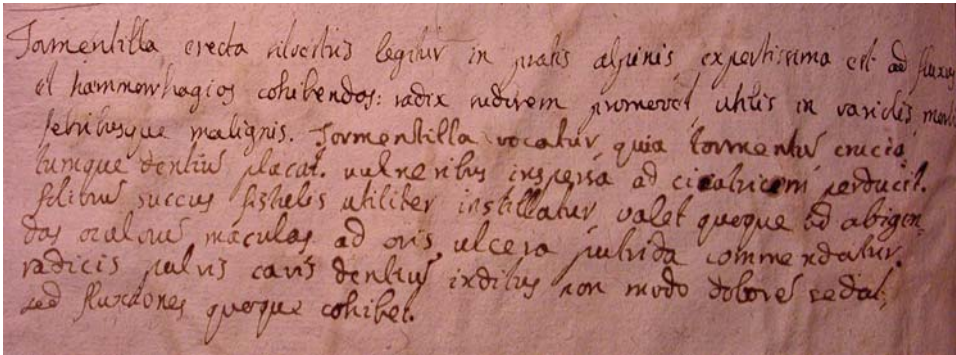 Tormentilla erecta silvestris legitur in pratis alpinis expertissima est ad fluxus
et hæmmorhagios cohibendos: radix sudorem promovet, utilis in variolis, morbi
febribusque malignis. Tormentilla vocatur, quia tormentū crucia
tumque dentiū placat. vulneribus inspersa ad cicatricem perducit.
succus fistulis utiliter instillatur, valet quoque ad abigen-
das oculorū maculas, ad oris ulcera putrida commendatur.
radicis pulvis cavis dentiū inditus non modo dolorē sedat,
sed fluxiones quoque cohibet.